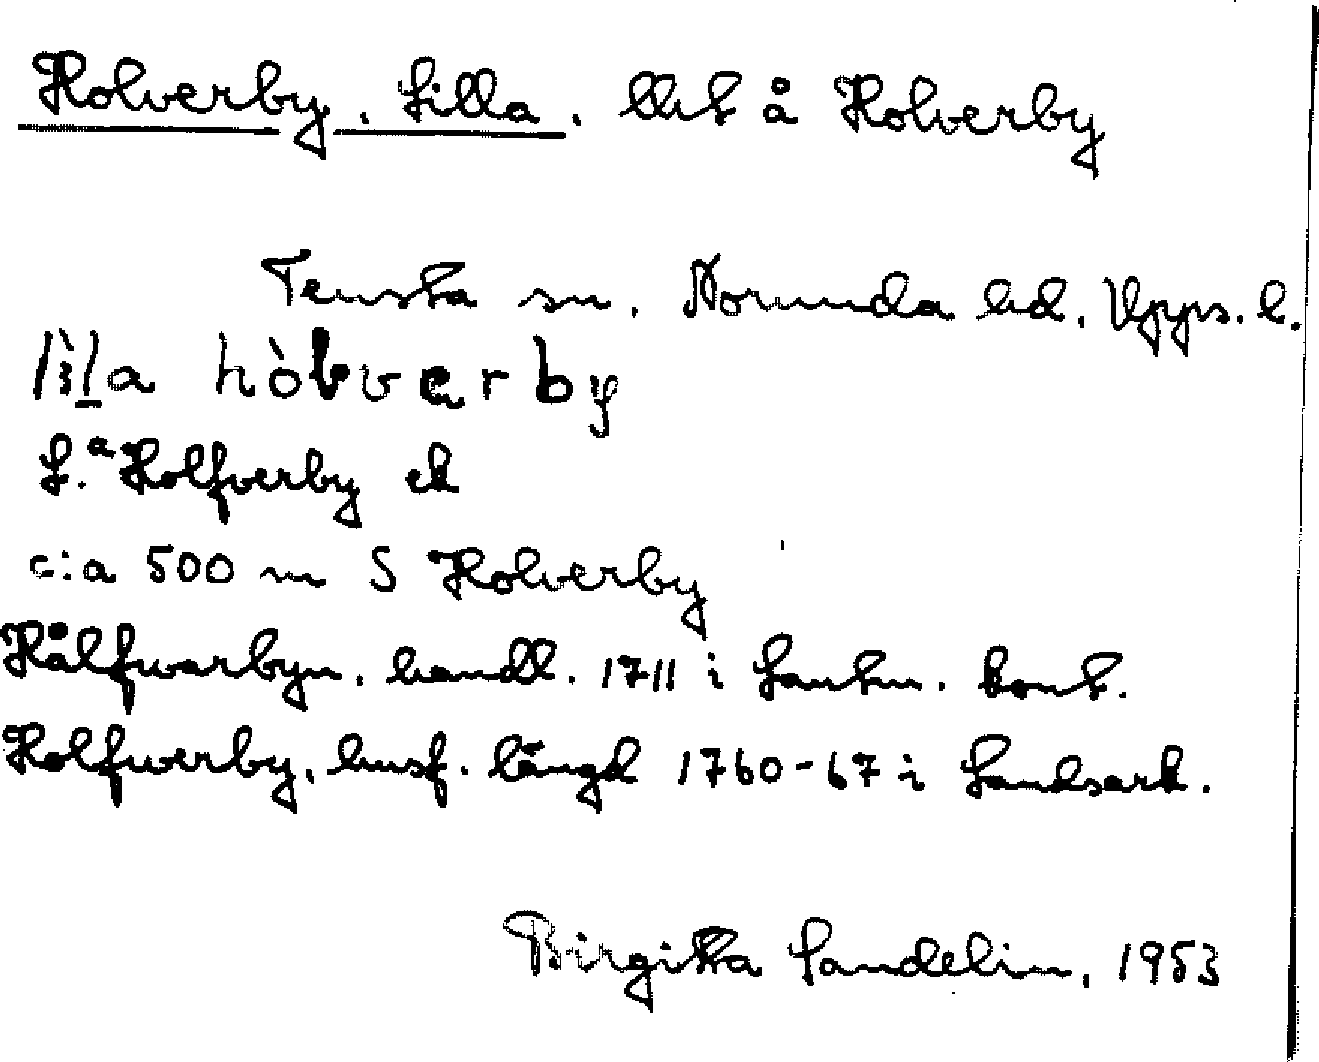 Holverby, Lilla, lht å Holverby
Tensta sn. Norunda hd. Upps. l.
lìla hòlverby
L.a Holfverby ek
c:a 500 m S Holverby
Hålfwerbyn, handl. 1711 i Lantm. kont.
Holfwerby, husf. längd 1760-67 i Landsark.
Birgitta Sandelin, 1953